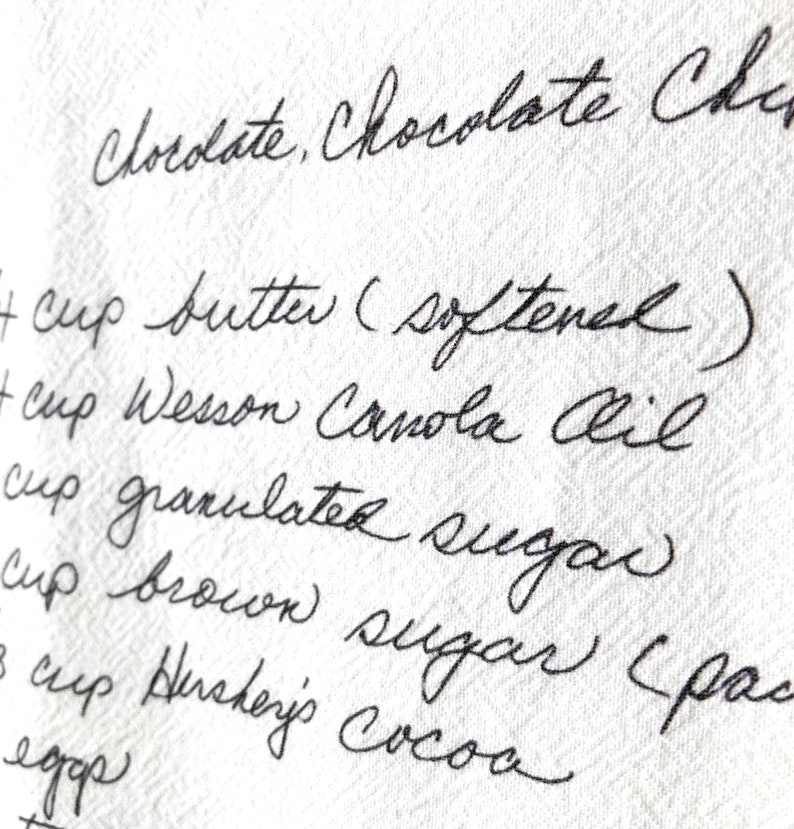 Chocolate, Chocolate Chi
4 cup butter (softened)
4 cup Wesson Canola Oil
cup granulated sugar
cup brown sugar (pac
3 cup Hershey's Cocoa
eggs